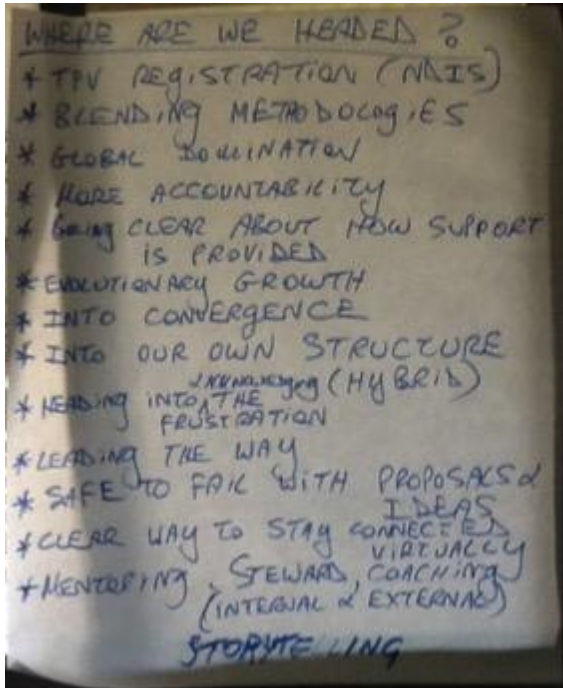 WHERE ARE WE HEADED ?
* TPV REGISTRATION (NDIS)
* BLENDING METHODOLOGIES
* GLOBAL DOMINATION
* MORE ACCOUNTABILITY
* Being CLEAR ABOUT HOW SUPPORT
IS PROVIDED
* EVOLUTIONARY GROWTH
* INTO CONVERGENCE
* INTO OUR OWN STRUCTURE
(HYBRID)
* HEADING INTO THE
FRUSTRATION
* LEADING THE WAY
* SAFE TO FAIL WITH PROPOSALS &
IDEAS
* CLEAR WAY TO STAY CONNECTED
VIRTUALLY
* MENTORING, STEWARD, COACHING
(INTERNAL & EXTERNAL)
STORYTELLING